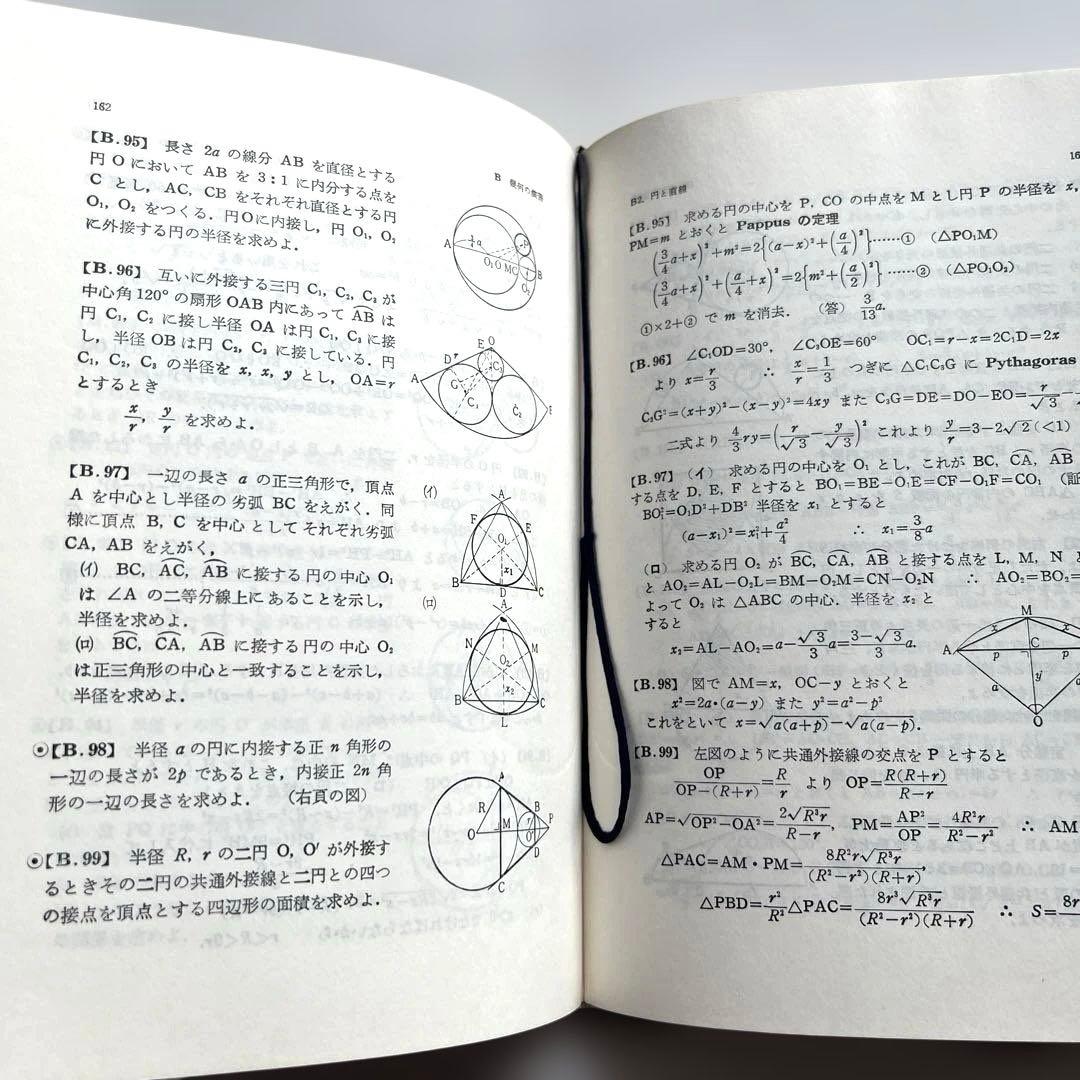 162
B 幾何の部
【B.95】 長さ 2a の線分 AB を直径とする
円 O において AB を 3:1 に内分する点を
C とし,AC,CB をそれぞれ直径とする円
O₁,O₂ をつくる.円Oに内接し,円 O₁,O₂
に外接する円の半径を求めよ.
A ¾a O₁ O M C B O₂ P
【B.96】 互いに外接する三円 C₁,C₂,C₃ が
中心角120°の扇形 OAB 内にあって A͡B は
円 C₁,C₂ に接し半径 OA は円 C₁,C₃ に接
し,半径 OB は円 C₂,C₃ に接している.円
C₁,C₂,C₃ の半径を x,x,y とし,OA=r
とするとき
x/r,y/r を求めよ.
E O D r C₃ A G C₁ C₂ B
【B.97】 一辺の長さ a の正三角形で,頂点
A を中心とし半径の 劣弧 BC をえがく.同
様に頂点 B,C を中心 として それぞれ劣弧
CA,AB をえがく,
(イ) BC,A͡C,A͡B に接する円の中心 O₁
は ∠A の二等分線上にあることを示し,
半径を求めよ.
(ロ) B͡C,C͡A,A͡B に接する円の中心 O₂
は正三角形の中心と一致することを示し,
半径を求めよ.
(イ) A F E O₁ x₁ B D C
(ロ) A N M O₂ x₂ B L C
◉【B.98】 半径 a の円に内接する正 n 角形の
一辺の長さが 2p であるとき,内接正 2n 角
形の一辺の長さを求めよ. (右頁の図)
◉【B.99】 半径 R,r の二円 O,O′ が外接す
るときその二円の共通外接線と二円との四つ
の接点を頂点とする四辺形の面積を求めよ.
A R B O M r P D C
16
B2. 円と直線
【B.95】 求める円の中心を P,CO の中点を M とし円 P の半径を x,
PM=m とおくと Pappus の定理
(3/4 a+x)²+m²=2{(a-x)²+(a/4)²}……① (△PO₁M)
(3/4 a+x)²+(a/4+x)²=2{m²+(a/2)²}……② (△PO₁O₂)
①×2+② で m を消去. (答) 3/13 a.
【B.96】 ∠C₁OD=30°, ∠C₃OE=60° OC₁=r-x=2C₁D=2x
より x=r/3 ∴ x/r=1/3 つぎに △C₁C₃G に Pythagoras
C₃G²=(x+y)²-(x-y)²=4xy また C₃G=DE=DO-EO=r/√3-
二式より 4/3 ry=(r/√3-y/√3)² これより y/r=3-2√2(<1)
【B.97】 (イ) 求める円の中心を O₁ とし,これが BC,C͡A,A͡B
する点を D,E,F とすると BO₁=BE-O₁E=CF-O₁F=CO₁ (証
BO₁²=O₁D²+DB² 半径を x₁ とすると
(a-x₁)²=x₁²+a²/4 ∴ x₁=3/8 a
(ロ) 求める円 O₂ が B͡C,C͡A,A͡B と接する点を L,M,N と
と AO₂=AL-O₂L=BM-O₂M=CN-O₂N ∴ AO₂=BO₂=
よって O₂ は △ABC の中心.半径を x₂ と
すると
x₂=AL-AO₂=a-√3/3 a=(3-√3)/3 a.
M x x A p C p y a a O
【B.98】 図で AM=x,OC=y とおくと
x²=2a·(a-y) また y²=a²-p²
これをといて x=√a(a+p)-√a(a-p).
【B.99】 左図のように共通外接線の交点を P とすると
OP/(OP-(R+r))=R/r より OP=R(R+r)/(R-r)
AP=√OP²-OA²=2√R³r/(R-r),PM=AP²/OP=4R²r/(R²-r²) ∴ AM
△PAC=AM·PM=8R²r√R³r/((R²-r²)(R+r)),
△PBD=r²/R² △PAC=8r³√R³r/((R²-r²)(R+r)) ∴ S=8r